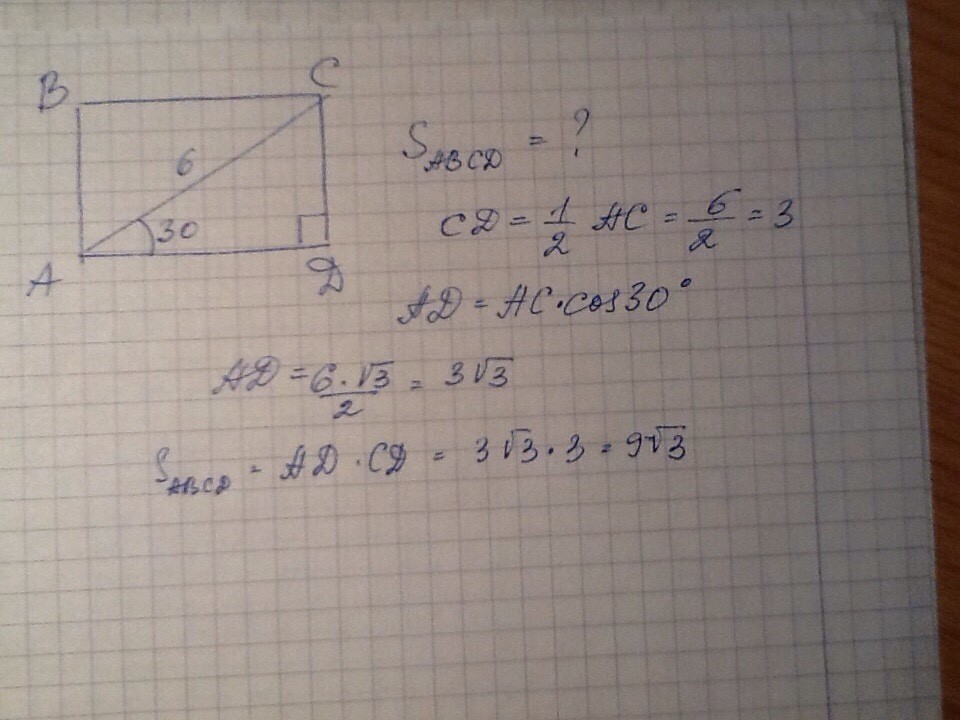 B C
6
30
A D
S_ABCD = ?
CD = 1/2 AC = 6/2 = 3
AD = AC · cos 30°
AD = 6 · √3 / 2 = 3√3
S_ABCD = AD · CD = 3√3 · 3 = 9√3